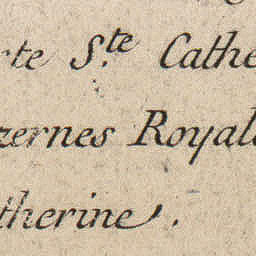 rte S.te Cathe
zernes Royale
therine.